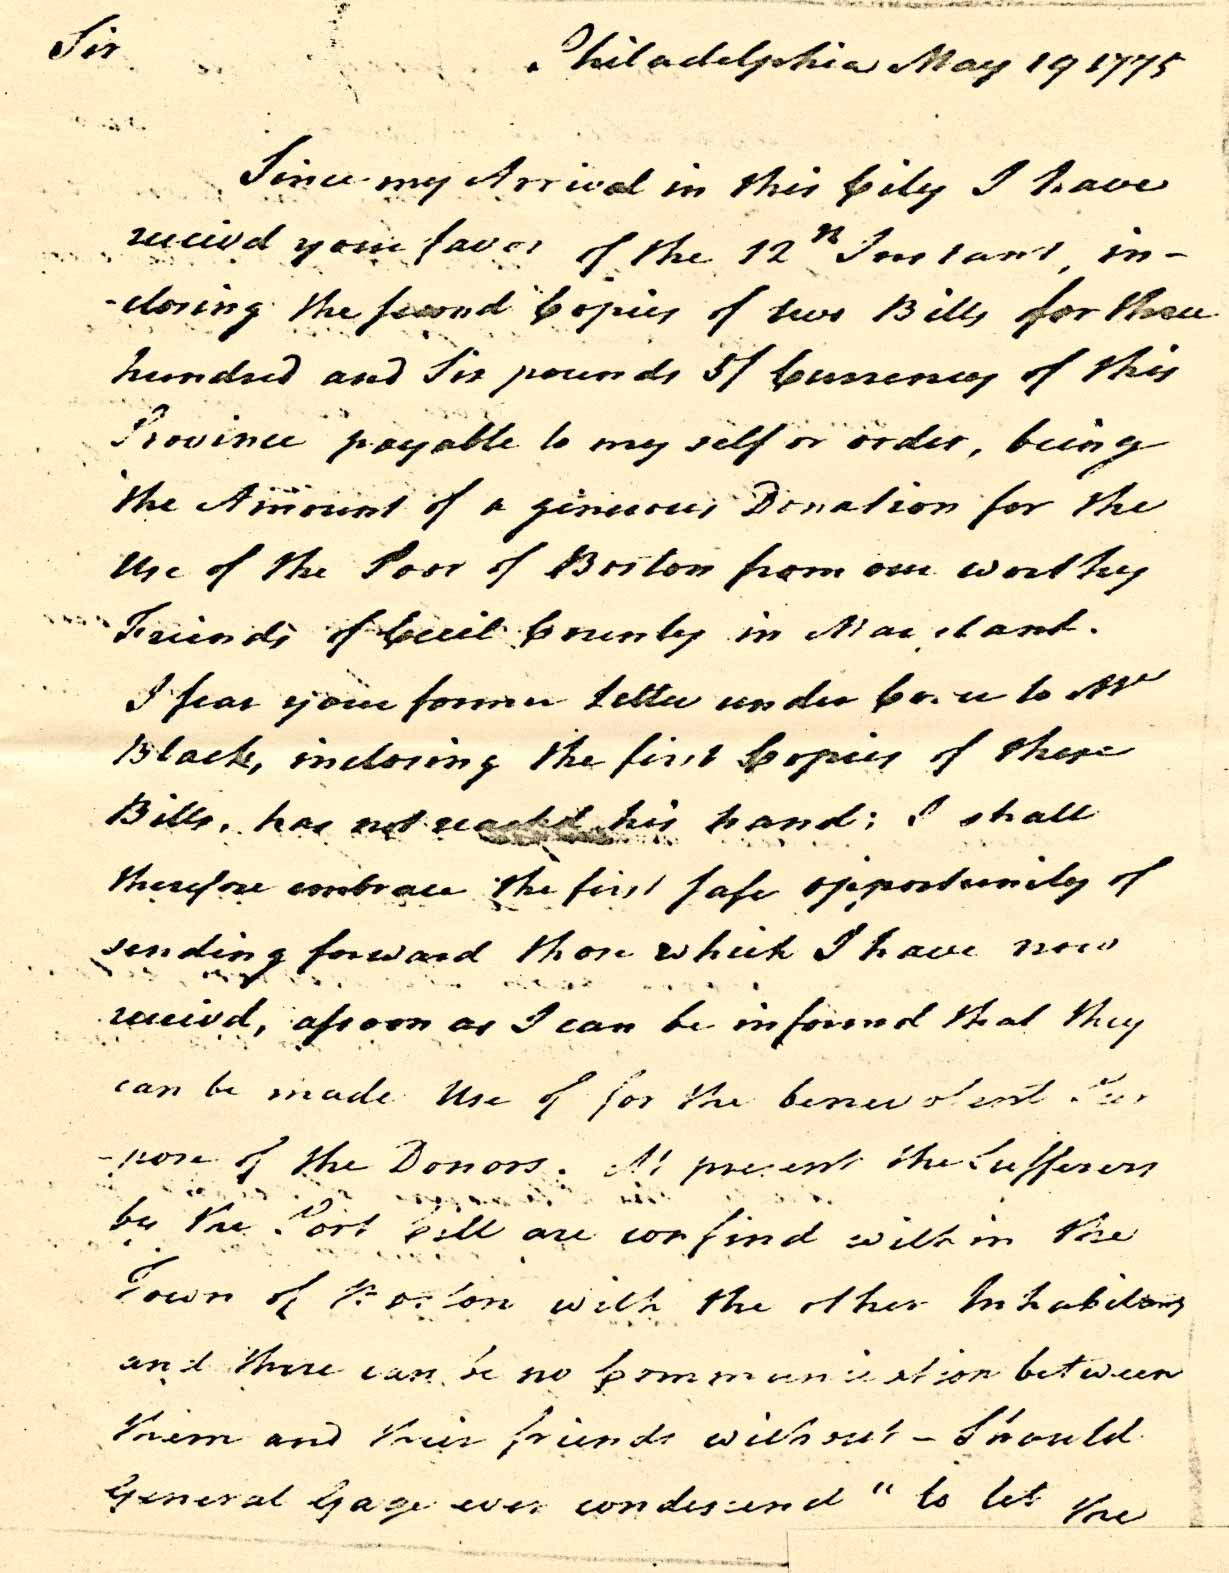 Sir
Philadelphia May 19 1775
Since my Arrival in this City I have
receivd your favor of the 12th Instant, in-
-closing the second Copies of two Bills for three
hundred and Six pounds 5/ Currency of this
Province payable to my self or order, being
the Amount of a generous Donation for the
Use of the Poor of Boston from our worthy
Friends of Cecil County in Maryland.
I fear your former Letter under Cover to Mr
Black, inclosing the first Copies of these
Bills, has not reached his hand; I shall
therefore embrace the first safe opportunity of
sending forward those which I have now
receivd, assoon as I can be informd that they
can be made Use of for the benevolent Pur
-pose of the Donors. At present the Sufferers
by the Port Bill are confind within the
Town of Boston with the other Inhabitants
and there can be no Communication between
them and their friends without - Should
General Gage ever condescend " to let the